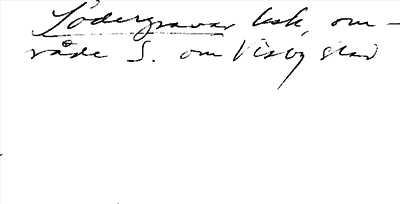 Södergravar lisk, om-
råde S. om Visby stad